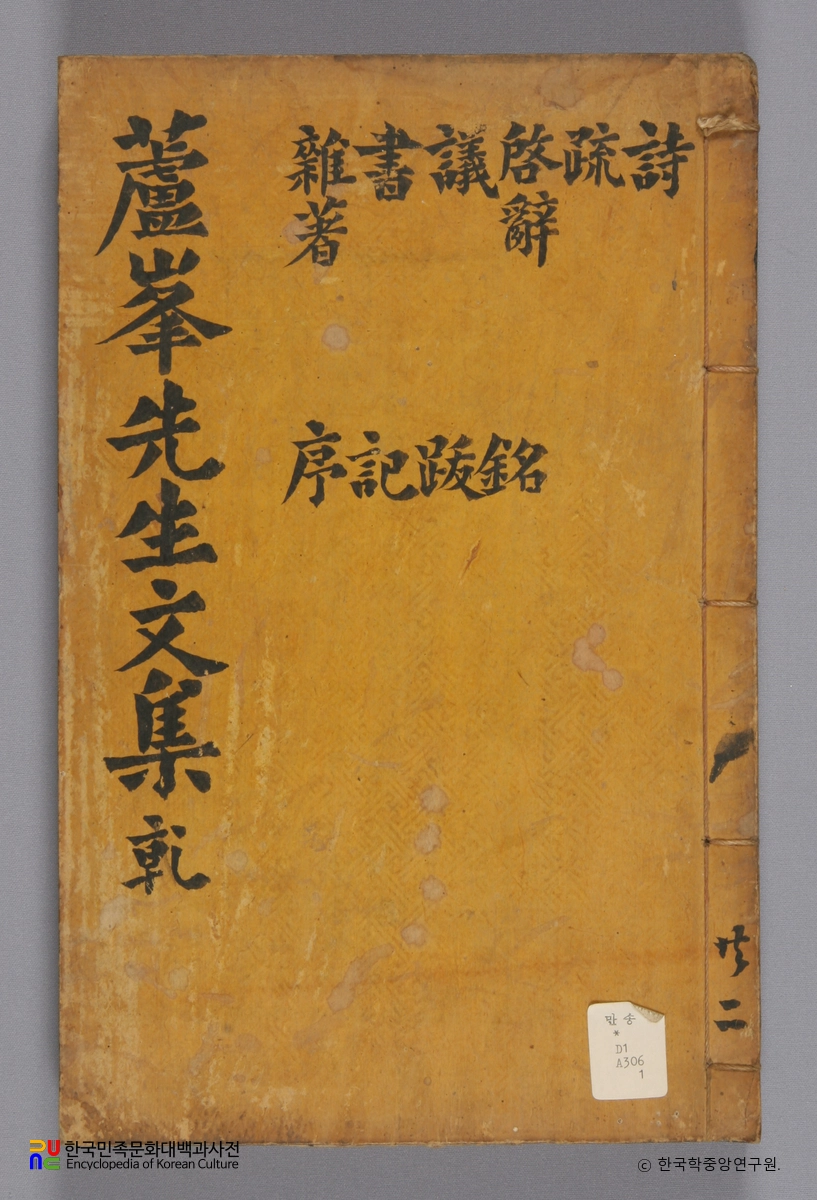 蘆峯先生文集 乾
詩
疏
啓辭
議
書
雜著
銘
跋
記
序
共二
만송
*
D1
A306
1
한국민족문화대백과사전
Encyclopedia of Korean Culture
ⓒ 한국학중앙연구원.